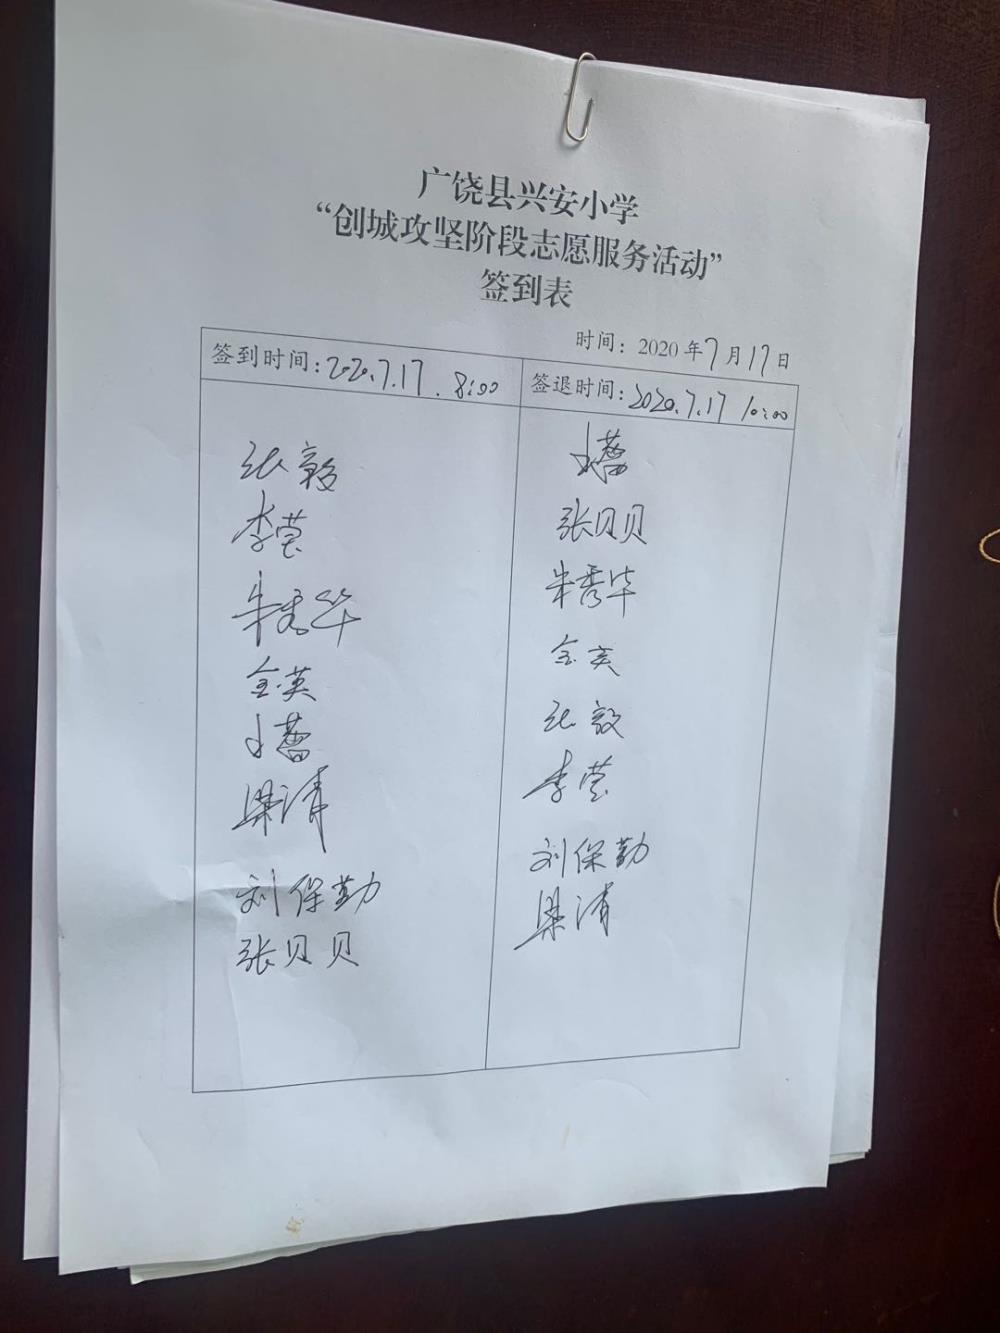 广饶县兴安小学
“创城攻坚阶段志愿服务活动”
签到表
时间：2020年7月17日
签到时间：2020.7.17. 8:00
签退时间：2020.7.17 10:00
张毅
李莹
朱秀华
金英
王蕾
梁清
刘保勤
张贝贝
王蕾
张贝贝
朱秀华
金英
张毅
李莹
刘保勤
梁清